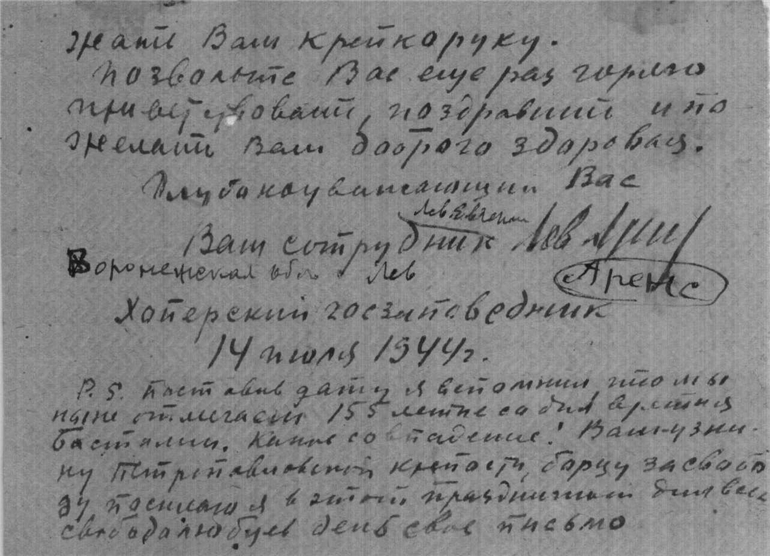 жать Вам крепко руку.
Позвольте Вас еще раз горячо
приветствовать, поздравить и по
желать Вам доброго здоровья.
Глубокоуважающий Вас
Лев Евгени
Ваш сотрудник Лев
Воронежская обл. Лев
Аренс
Хоперский госзаповедник
14 июля 1944 г.
P.S. Поставив дату я вспомнил что мы
ныне отмечаем 155 летие со дня взятия
Бастилии. Какое совпадение! Вам-узни-
ку Петропавловской крепости, борцу за свобо
ду, посылаю я в этот праздничный для всех
свободолюбцев день свое письмо